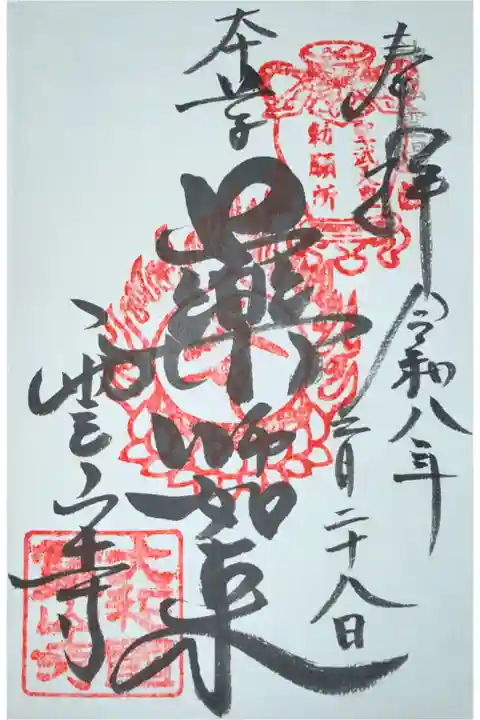 奉拝
令和八年二月二十八日
勅願所
本尊
藥師如来
霊山寺